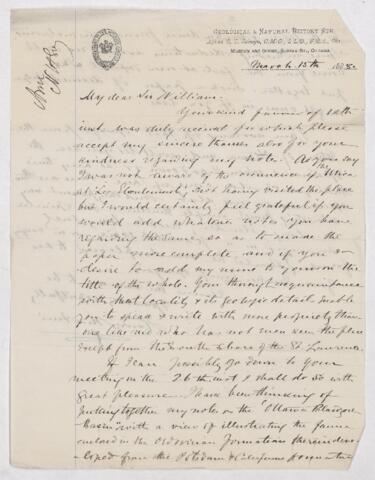 GEOLOGICAL & NATURAL HISTORY SUR
C.M.G., LL.D., F.R.S.,
MUSEUM AND OFFICE, SUSSEX ST., OTTAWA
March 15th 188
My dear Sir William.
Your kind favour of 12th
inst was duly received for which please
accept my sincere thanks also for your
kindness regarding my note. As you say
I was not aware of the occurrence of Utica
at not having visited the place
but I would certainly feel grateful if you
would add whatever notes you have
regarding the same so as to make the
paper more complete, and if you so
desire to add my name to yours on the
title of the whole. Your thorough acquaintance
with that locality & its geologic detail enable
you to speak & write with more propriety than
one like me who has not even seen the place
except from the south shore of the St. Lawrence.
If I can possibly go down to your
meeting on the 26th inst I shall do so with
great pleasure. I have been thinking of
putting together my notes on the "Ottawa Palæozoic
Basin" with a view of illustrating the fauna
enclosed in the Ordovician formations there
from the Potsdam & Calciferous formation